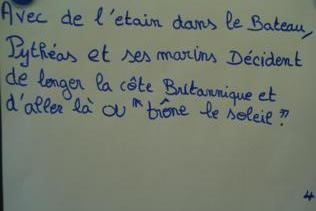 Avec de l'etain dans le Bateau,
Pythéas et ses marins Décident
de longer la côte Britannique et
d'aller là ou "trône le soleil"
4